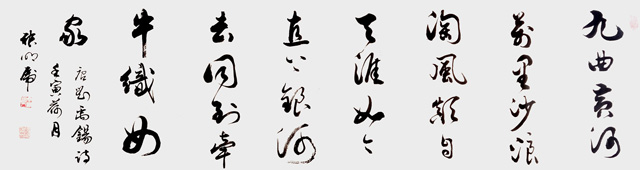 九曲黄河
萬里沙浪
淘風顛自
天涯如今
直上銀河
去同到牽
牛織女
家
唐劉禹錫詩
壬寅荷月